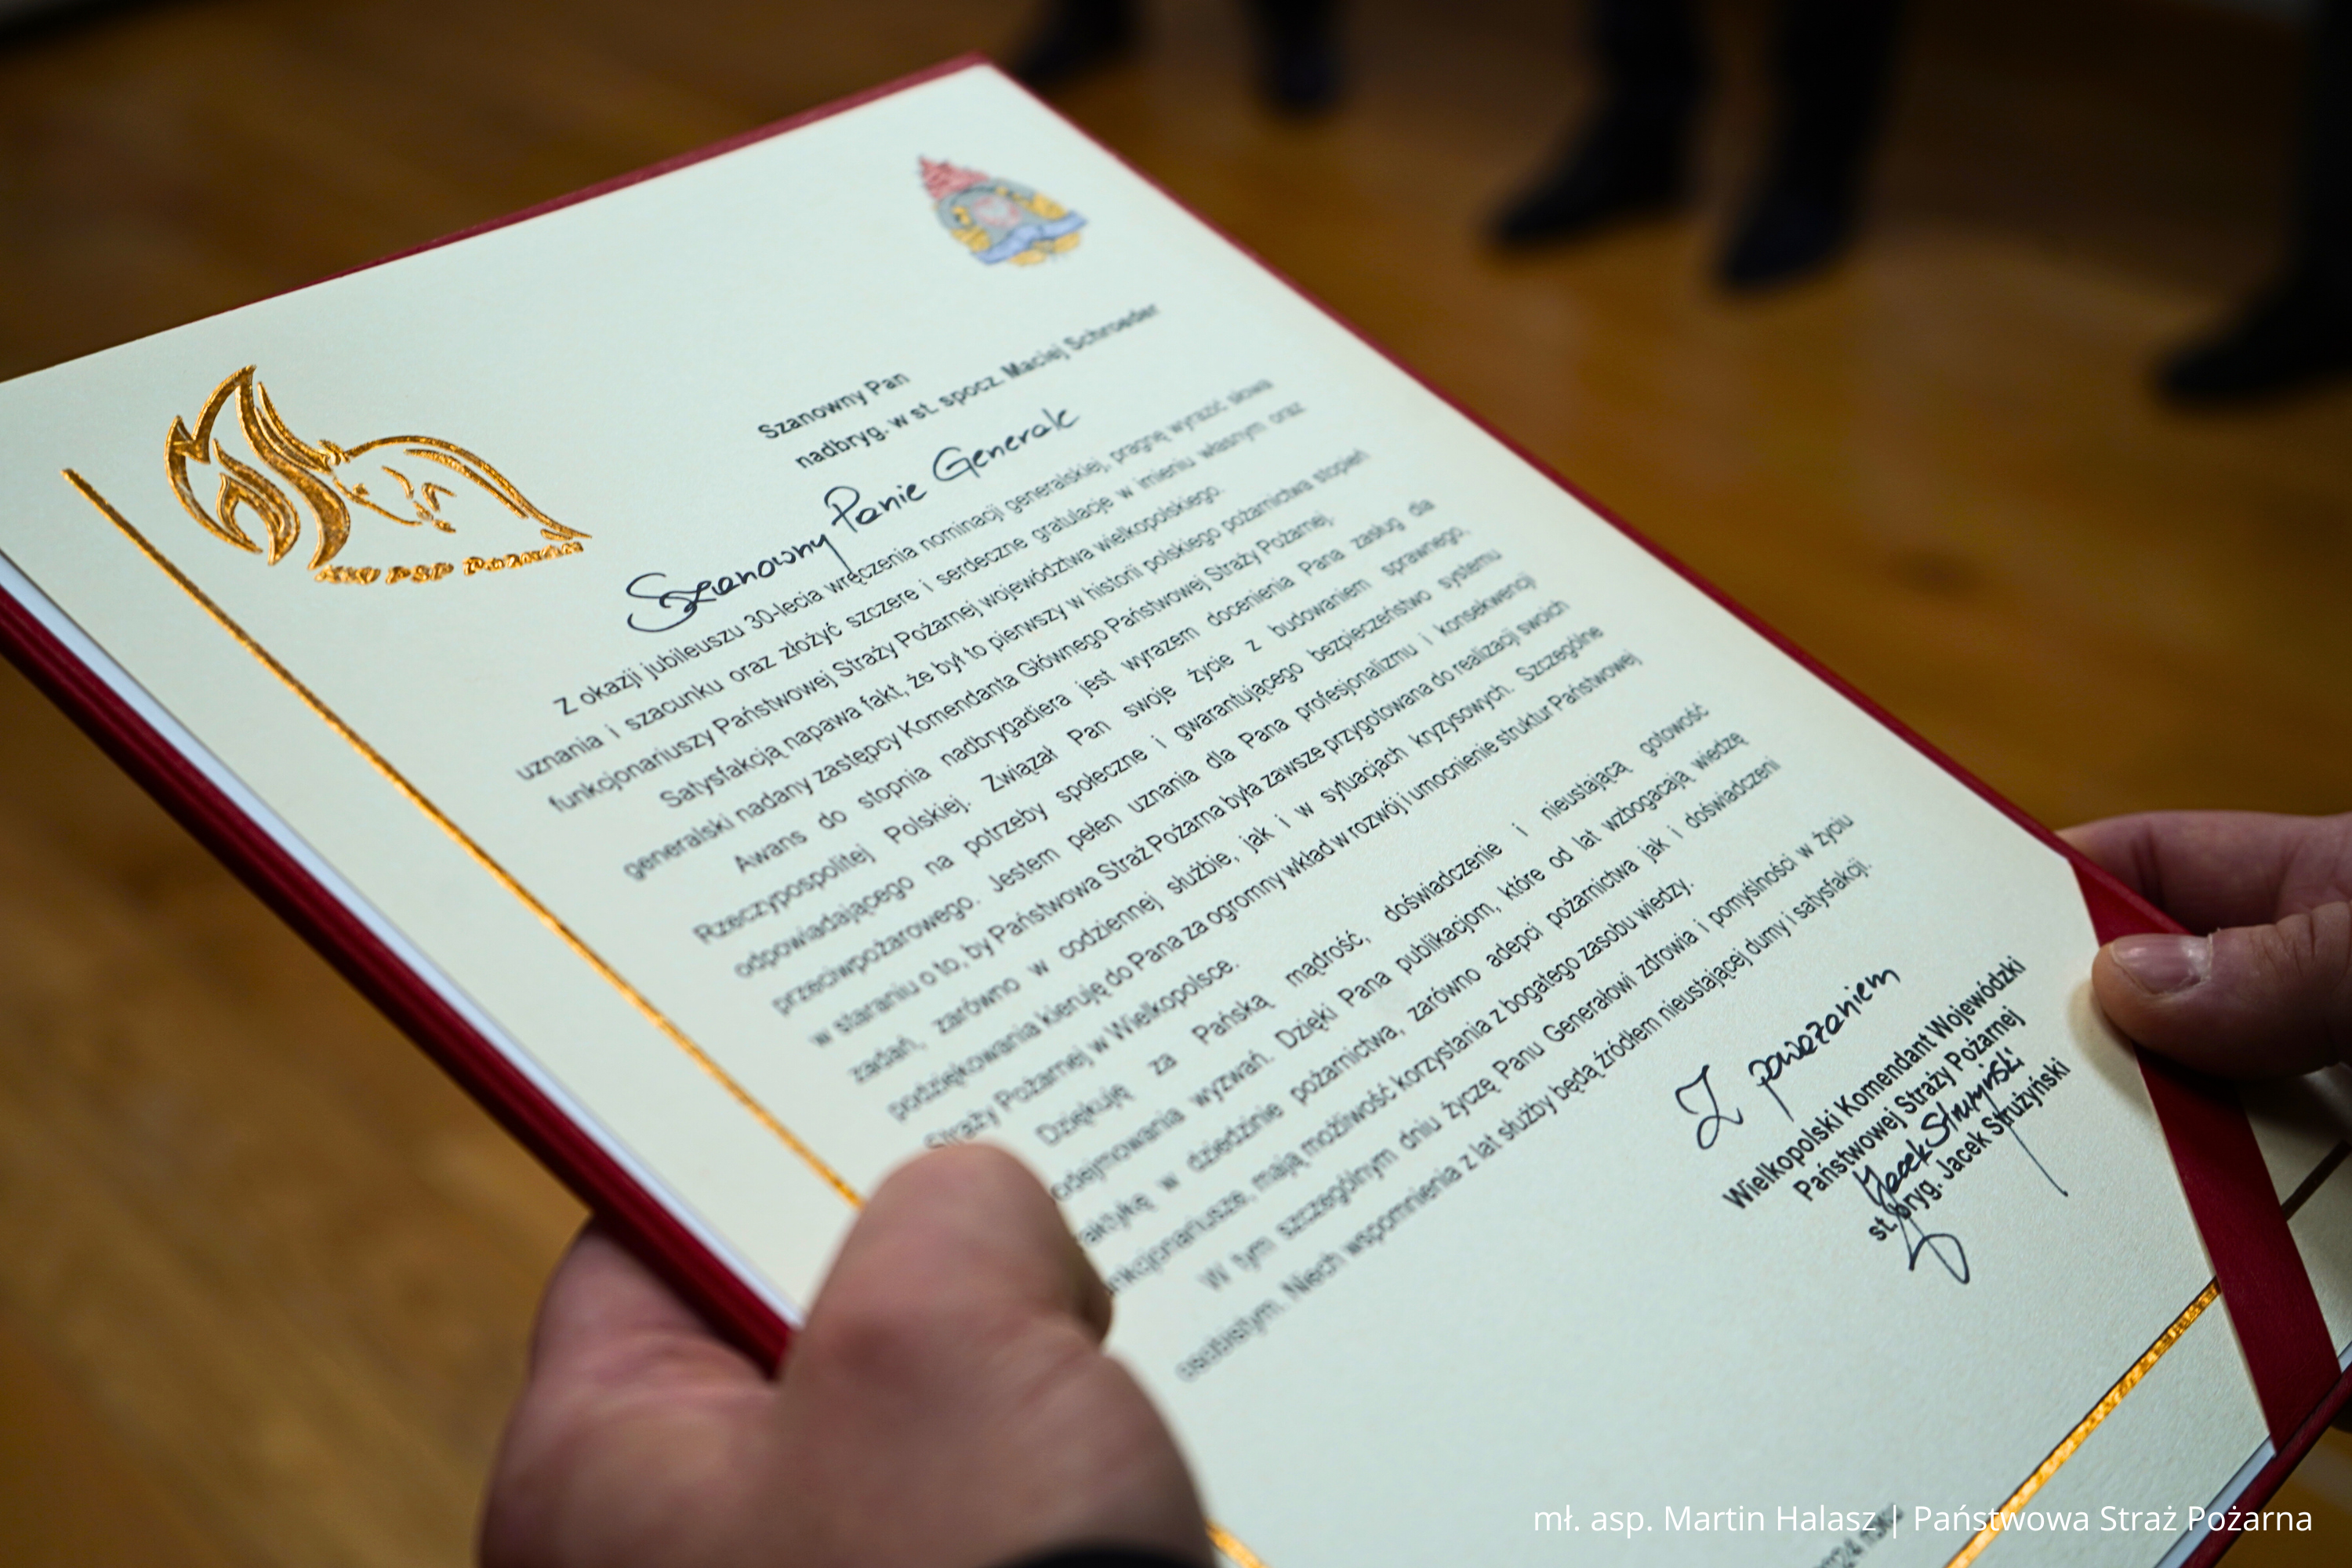 KW PSP Poznań
Szanowny Pan
nadbryg. w st. spocz. Maciej Schroeder
Szanowny Panie Generale
Z okazji jubileuszu 30-lecia wręczenia nominacji generalskiej, pragnę wyrazić słowa
uznania i szacunku oraz złożyć szczere i serdeczne gratulacje w imieniu własnym oraz
funkcjonariuszy Państwowej Straży Pożarnej województwa wielkopolskiego.
Satysfakcją napawa fakt, że był to pierwszy w historii polskiego pożarnictwa stopień
generalski nadany zastępcy Komendanta Głównego Państwowej Straży Pożarnej.
Awans do stopnia nadbrygadiera jest wyrazem docenienia Pana zasług dla
Rzeczypospolitej Polskiej. Związał Pan swoje życie z budowaniem sprawnego,
odpowiadającego na potrzeby społeczne i gwarantującego bezpieczeństwo systemu
przeciwpożarowego. Jestem pełen uznania dla Pana profesjonalizmu i konsekwencji
w staraniu o to, by Państwowa Straż Pożarna była zawsze przygotowana do realizacji swoich
zadań, zarówno w codziennej służbie, jak i w sytuacjach kryzysowych. Szczególne
podziękowania kieruję do Pana za ogromny wkład w rozwój i umocnienie struktur Państwowej
Straży Pożarnej w Wielkopolsce.
Dziękuję za Pańską mądrość, doświadczenie i nieustającą gotowość
odejmowania wyzwań. Dzięki Pana publikacjom, które od lat wzbogacają wiedzę
aktykę w dziedzinie pożarnictwa, zarówno adepci pożarnictwa jak i doświadczeni
nkcjonariusze, mają możliwość korzystania z bogatego zasobu wiedzy.
W tym szczególnym dniu życzę Panu Generałowi zdrowia i pomyślności w życiu
osobistym. Niech wspomnienia z lat służby będą źródłem nieustającej dumy i satysfakcji.
Z poważaniem
Wielkopolski Komendant Wojewódzki
Państwowej Straży Pożarnej
Jacek Strużyński
st. bryg. Jacek Strużyński
mł. asp. Martin Halasz | Państwowa Straż Pożarna